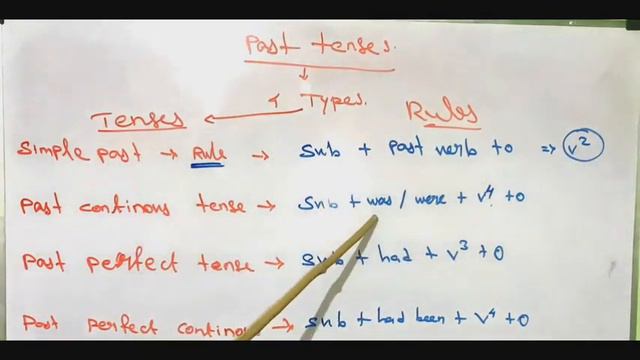 Past tenses.
↓
4 Types.
Tenses ← Rules
Simple past → Rule → Sub + past verb to => v²
Past continous tense → Sub + was / were + v⁴ + o
Past perfect tense → Sub + had + v³ + o
Past perfect continous → Sub + had been + v⁴ + o